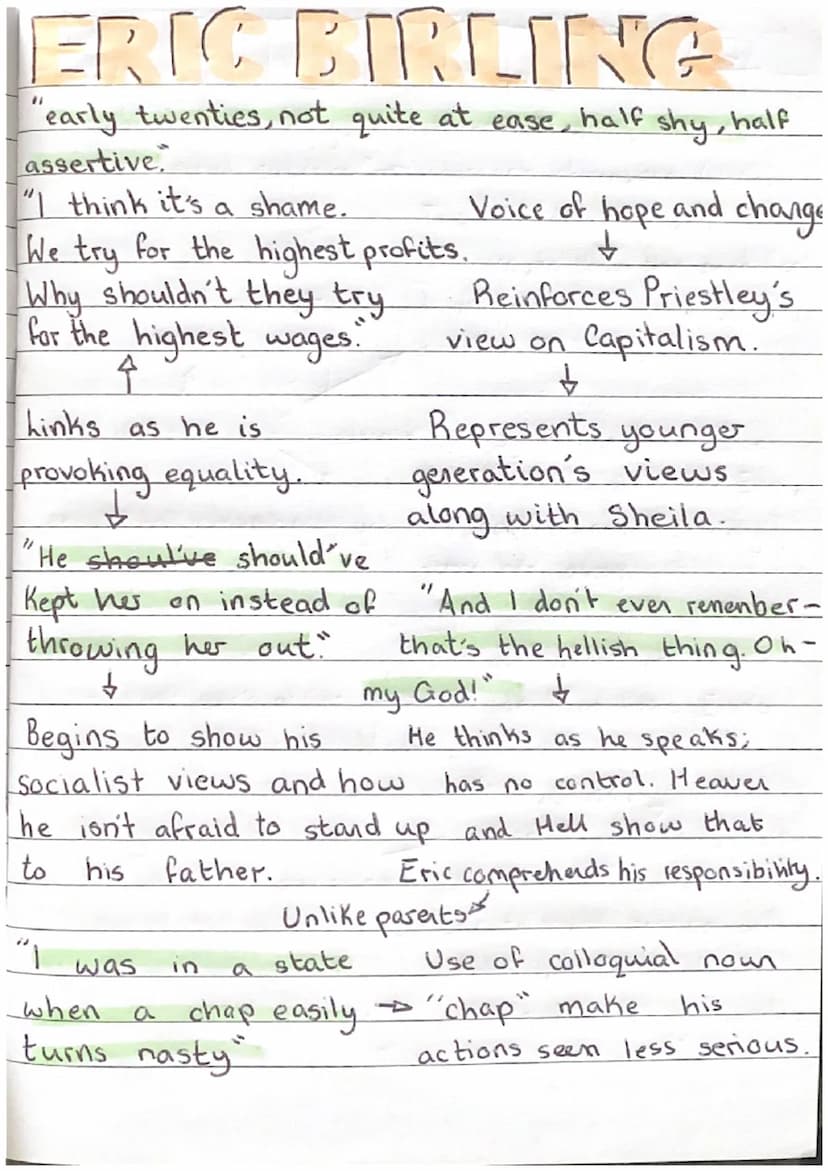 ERIC BIRLING
"early twenties, not quite at ease, half shy, half
assertive."
"I think it's a shame.
We try for the highest profits.
Why shouldn't they try
for the highest wages."
Voice of hope and change
↓
Reinforces Priestley's
view on Capitalism.
↓
Represents younger
generation's views
along with Sheila.
↑
Links as he is
provoking equality.
↓
"He shoul've should've
Kept her on instead of
throwing her out."
↓
Begins to show his
socialist views and how
he isn't afraid to stand up
to his father.
"And I don't even renenber-
that's the hellish thing. Oh-
my God!"
↓
He thinks as he speaks;
has no control. Heaven
and Hell show that
Eric comprehends his responsibility.
Unlike parents
"I was in a state
when a chap easily →
turns nasty"
Use of colloquial noun
"chap" make his
actions seen less serious.